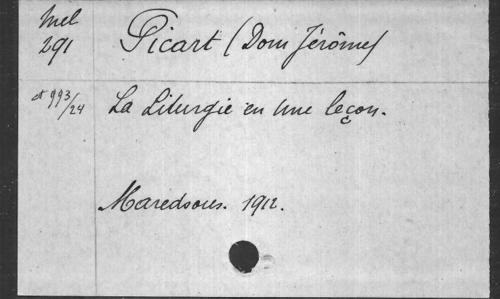 Mel
291
Picart (Dom Jérôme)
et 993/24
La Liturgie en une leçon.
Maredsous. 1912.